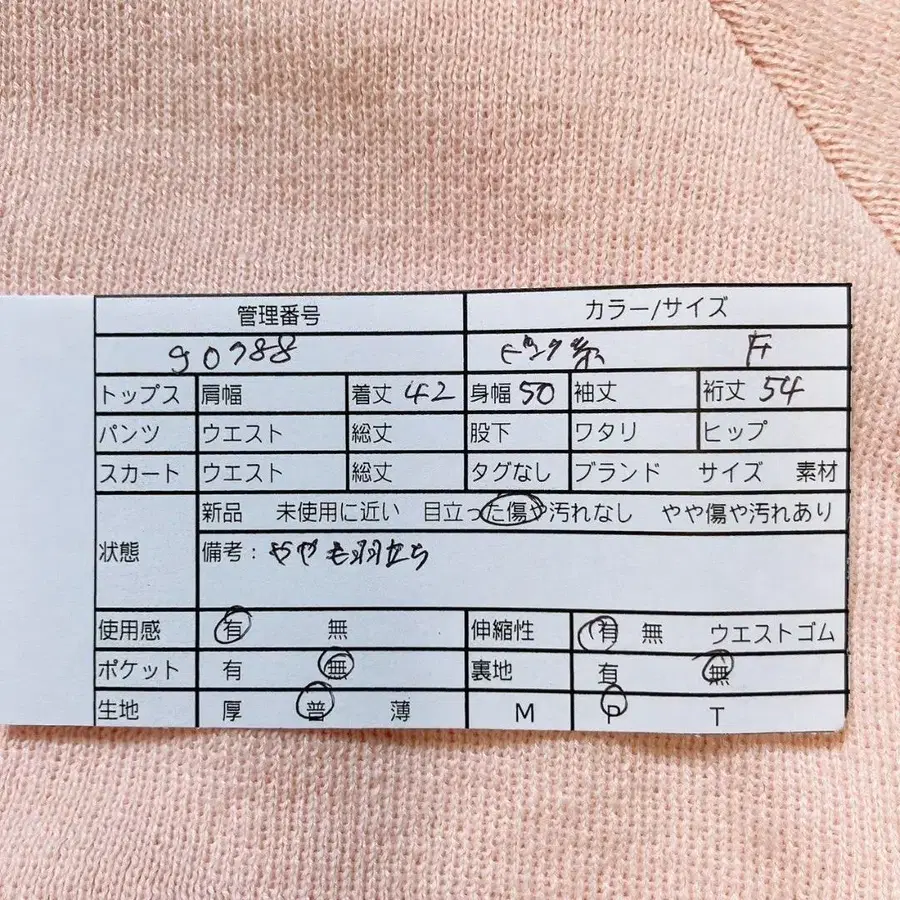 管理番号 カラー/サイズ
90788 ピンク系 F
トップス 肩幅 着丈 42 身幅 50 袖丈 裄丈 54
パンツ ウエスト 総丈 股下 ワタリ ヒップ
スカート ウエスト 総丈 タグなし ブランド サイズ 素材
状態 新品 未使用に近い 目立った傷や汚れなし やや傷や汚れあり
備考: やや毛羽立ち
使用感 有 無 伸縮性 有 無 ウエストゴム
ポケット 有 無 裏地 有 無
生地 厚 普 薄 M P T